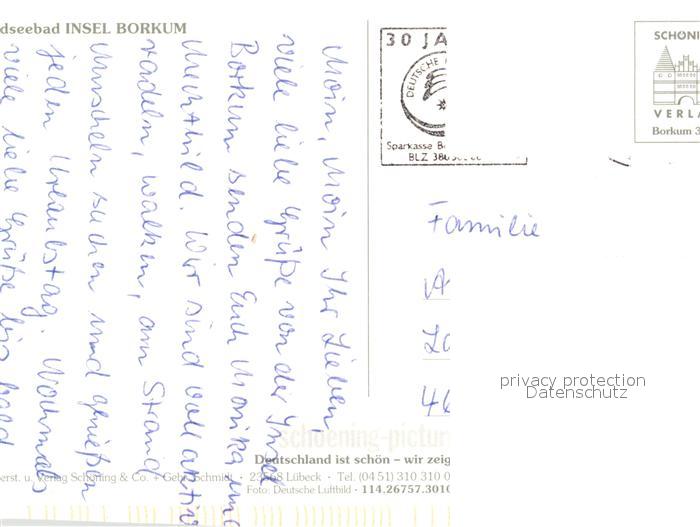 dseebad INSEL BORKUM
Moin, Moin Ihr Lieben,
viele liebe Grüße von der Insel
Borkum senden Euch Monika und
Mechthild. Wir sind voll aktiv
radeln, walken, am Strand
Muscheln suchen und genießen
jeden Urlaubstag. Nochmals
viele liebe Grüße bis bald
30 JA
DEUTSCHE
Sparkasse B
BLZ 380
SCHÖNI
VERLA
Borkum 3
Familie
A
46
privacy protection
Datenschutz
schoening-pictur
Deutschland ist schön – wir zeig
erst. u. Verlag Schöning & Co. + Gebr. Schmidt · 23558 Lübeck · Tel. (04 51) 310 310 0
Foto: Deutsche Luftbild · 114.26757.3010